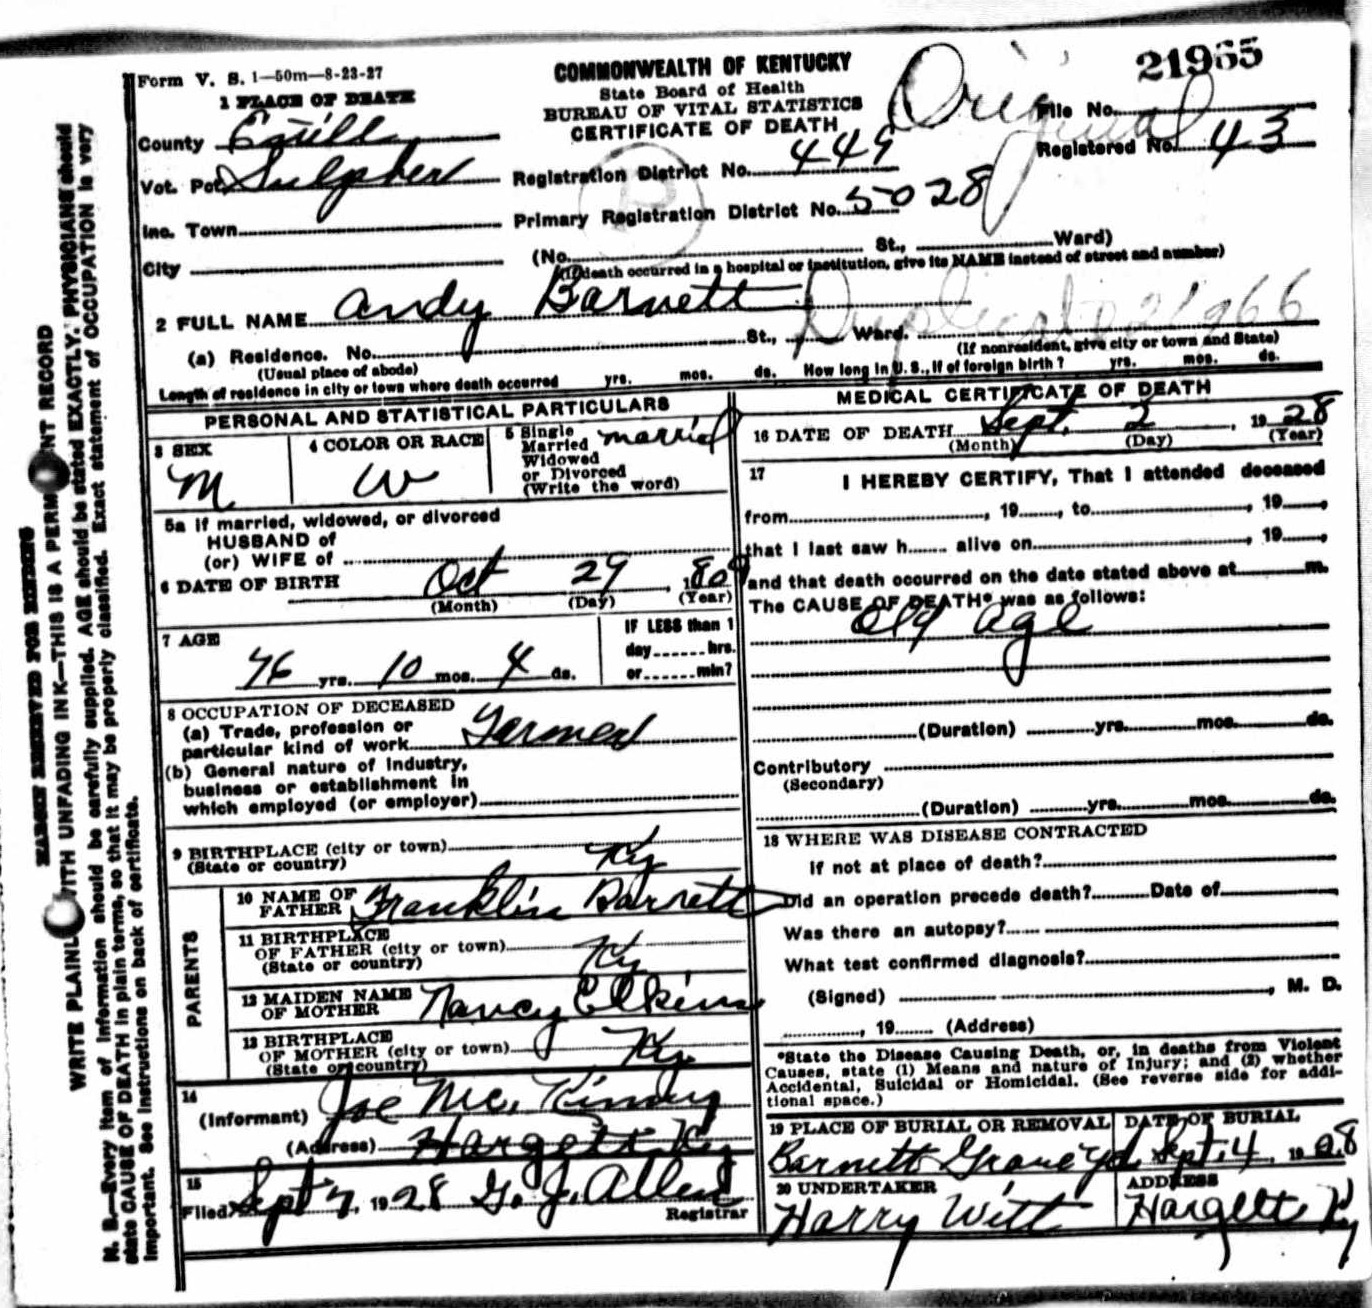 Form V. S. 1—50m—8-23-27
COMMONWEALTH OF KENTUCKY
State Board of Health
BUREAU OF VITAL STATISTICS
CERTIFICATE OF DEATH
Original
21965
File No.
Registered No. 43
1 PLACE OF DEATH
County Estill
Vot. Pct. Sulpher
Registration District No. 449
Inc. Town
Primary Registration District No. 5028
City
(No. St., Ward)
(If death occurred in a hospital or institution, give its NAME instead of street and number)
2 FULL NAME Andy Barnett
Duplicate 21966
(a) Residence. No. St., Ward.
(Usual place of abode)
(If nonresident, give city or town and State)
Length of residence in city or town where death occurred yrs. mos. ds. How long in U. S., if of foreign birth? yrs. mos. ds.
PERSONAL AND STATISTICAL PARTICULARS
3 SEX
M
4 COLOR OR RACE
W
5 Single
Married
Widowed
or Divorced
(Write the word)
married
5a If married, widowed, or divorced
HUSBAND of
(or) WIFE of
6 DATE OF BIRTH Oct 29, 1809
(Month) (Day) (Year)
7 AGE
76 yrs. 10 mos. 4 ds.
IF LESS than 1
day hrs.
or min?
8 OCCUPATION OF DECEASED
(a) Trade, profession or
particular kind of work Farmer
(b) General nature of Industry,
business or establishment in
which employed (or employer)
9 BIRTHPLACE (city or town) Ky
(State or country)
PARENTS
10 NAME OF
FATHER Franklin Barnett
11 BIRTHPLACE
OF FATHER (city or town) Ky
(State or country)
12 MAIDEN NAME
OF MOTHER Nancy Elkins
13 BIRTHPLACE
OF MOTHER (city or town) Ky
(State or country)
14
(Informant) Joe Mc. Kinney
(Address) Hargett Ky
15
Filed Sept 7, 1928 G. J. Allen
Registrar
MEDICAL CERTIFICATE OF DEATH
16 DATE OF DEATH Sept. 2, 1928
(Month) (Day) (Year)
17
I HEREBY CERTIFY, That I attended deceased
from , 19 , to , 19 ,
that I last saw h alive on , 19 ,
and that death occurred on the date stated above at m.
The CAUSE OF DEATH* was as follows:
Old age
(Duration) yrs. mos. ds.
Contributory
(Secondary)
(Duration) yrs. mos. ds.
18 WHERE WAS DISEASE CONTRACTED
if not at place of death?
Did an operation precede death? Date of
Was there an autopsy?
What test confirmed diagnosis?
(Signed) , M. D.
, 19 (Address)
*State the Disease Causing Death, or, in deaths from Violent
Causes, state (1) Means and nature of Injury; and (2) whether
Accidental, Suicidal or Homicidal. (See reverse side for addi-
tional space.)
19 PLACE OF BURIAL OR REMOVAL
Barnett Grave yd
DATE OF BURIAL
Sept. 4 1928
20 UNDERTAKER
Harry Witt
ADDRESS
Hargett Ky
MARGIN RESERVED FOR BINDING
WRITE PLAINLY WITH UNFADING INK—THIS IS A PERMANENT RECORD
N. B.—Every item of information should be carefully supplied. AGE should be stated EXACTLY. PHYSICIANS should
state CAUSE OF DEATH in plain terms, so that it may be properly classified. Exact statement of OCCUPATION is very
important. See instructions on back of certificate.